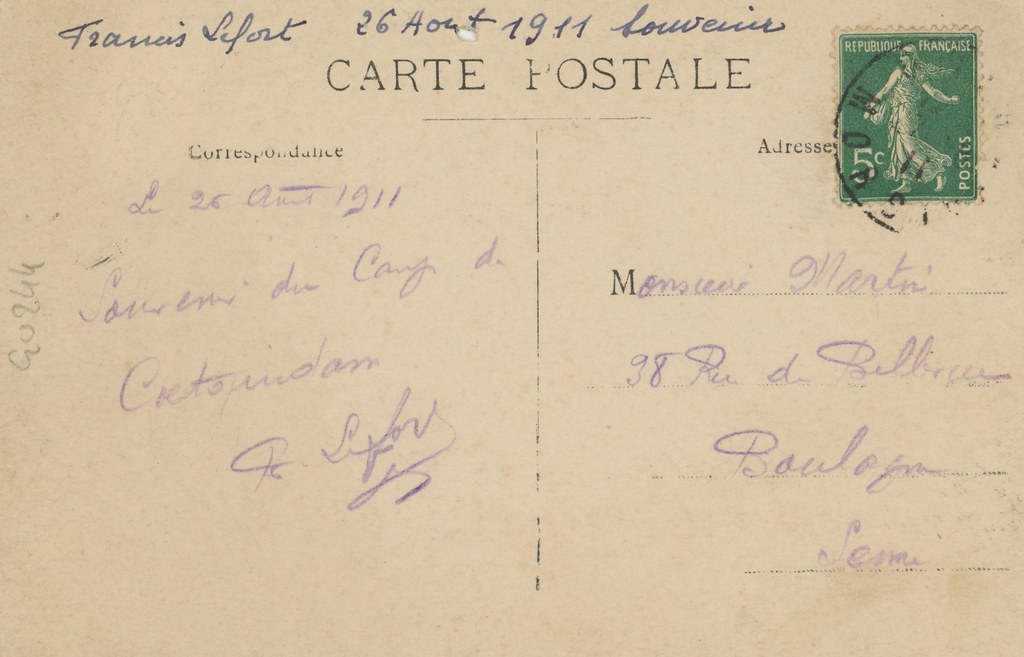 Francis Lefort 26 Aout 1911 Souvenir
CARTE POSTALE
REPUBLIQUE FRANÇAISE
5c
POSTES
Correspondance
Adresse
Le 26 Aout 1911
Souvenir du Camp de
Coetquidam
F Lefort
Monsieur Martin
98 Rue de
Boulogne
Seine
60244